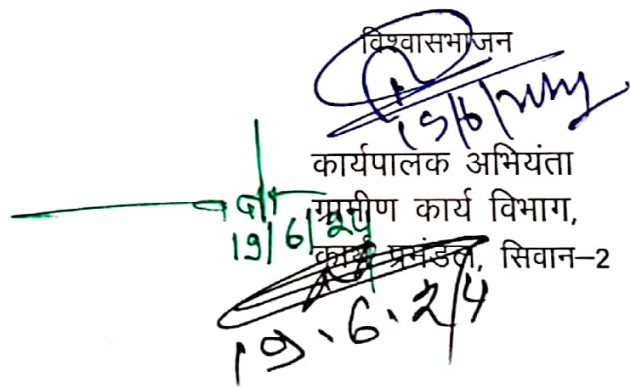 विश्वासभाजन
19/6/2024
कार्यपालक अभियंता
ग्रामीण कार्य विभाग,
19/6/24
कार्य प्रमंडल, सिवान-2
19.6.24